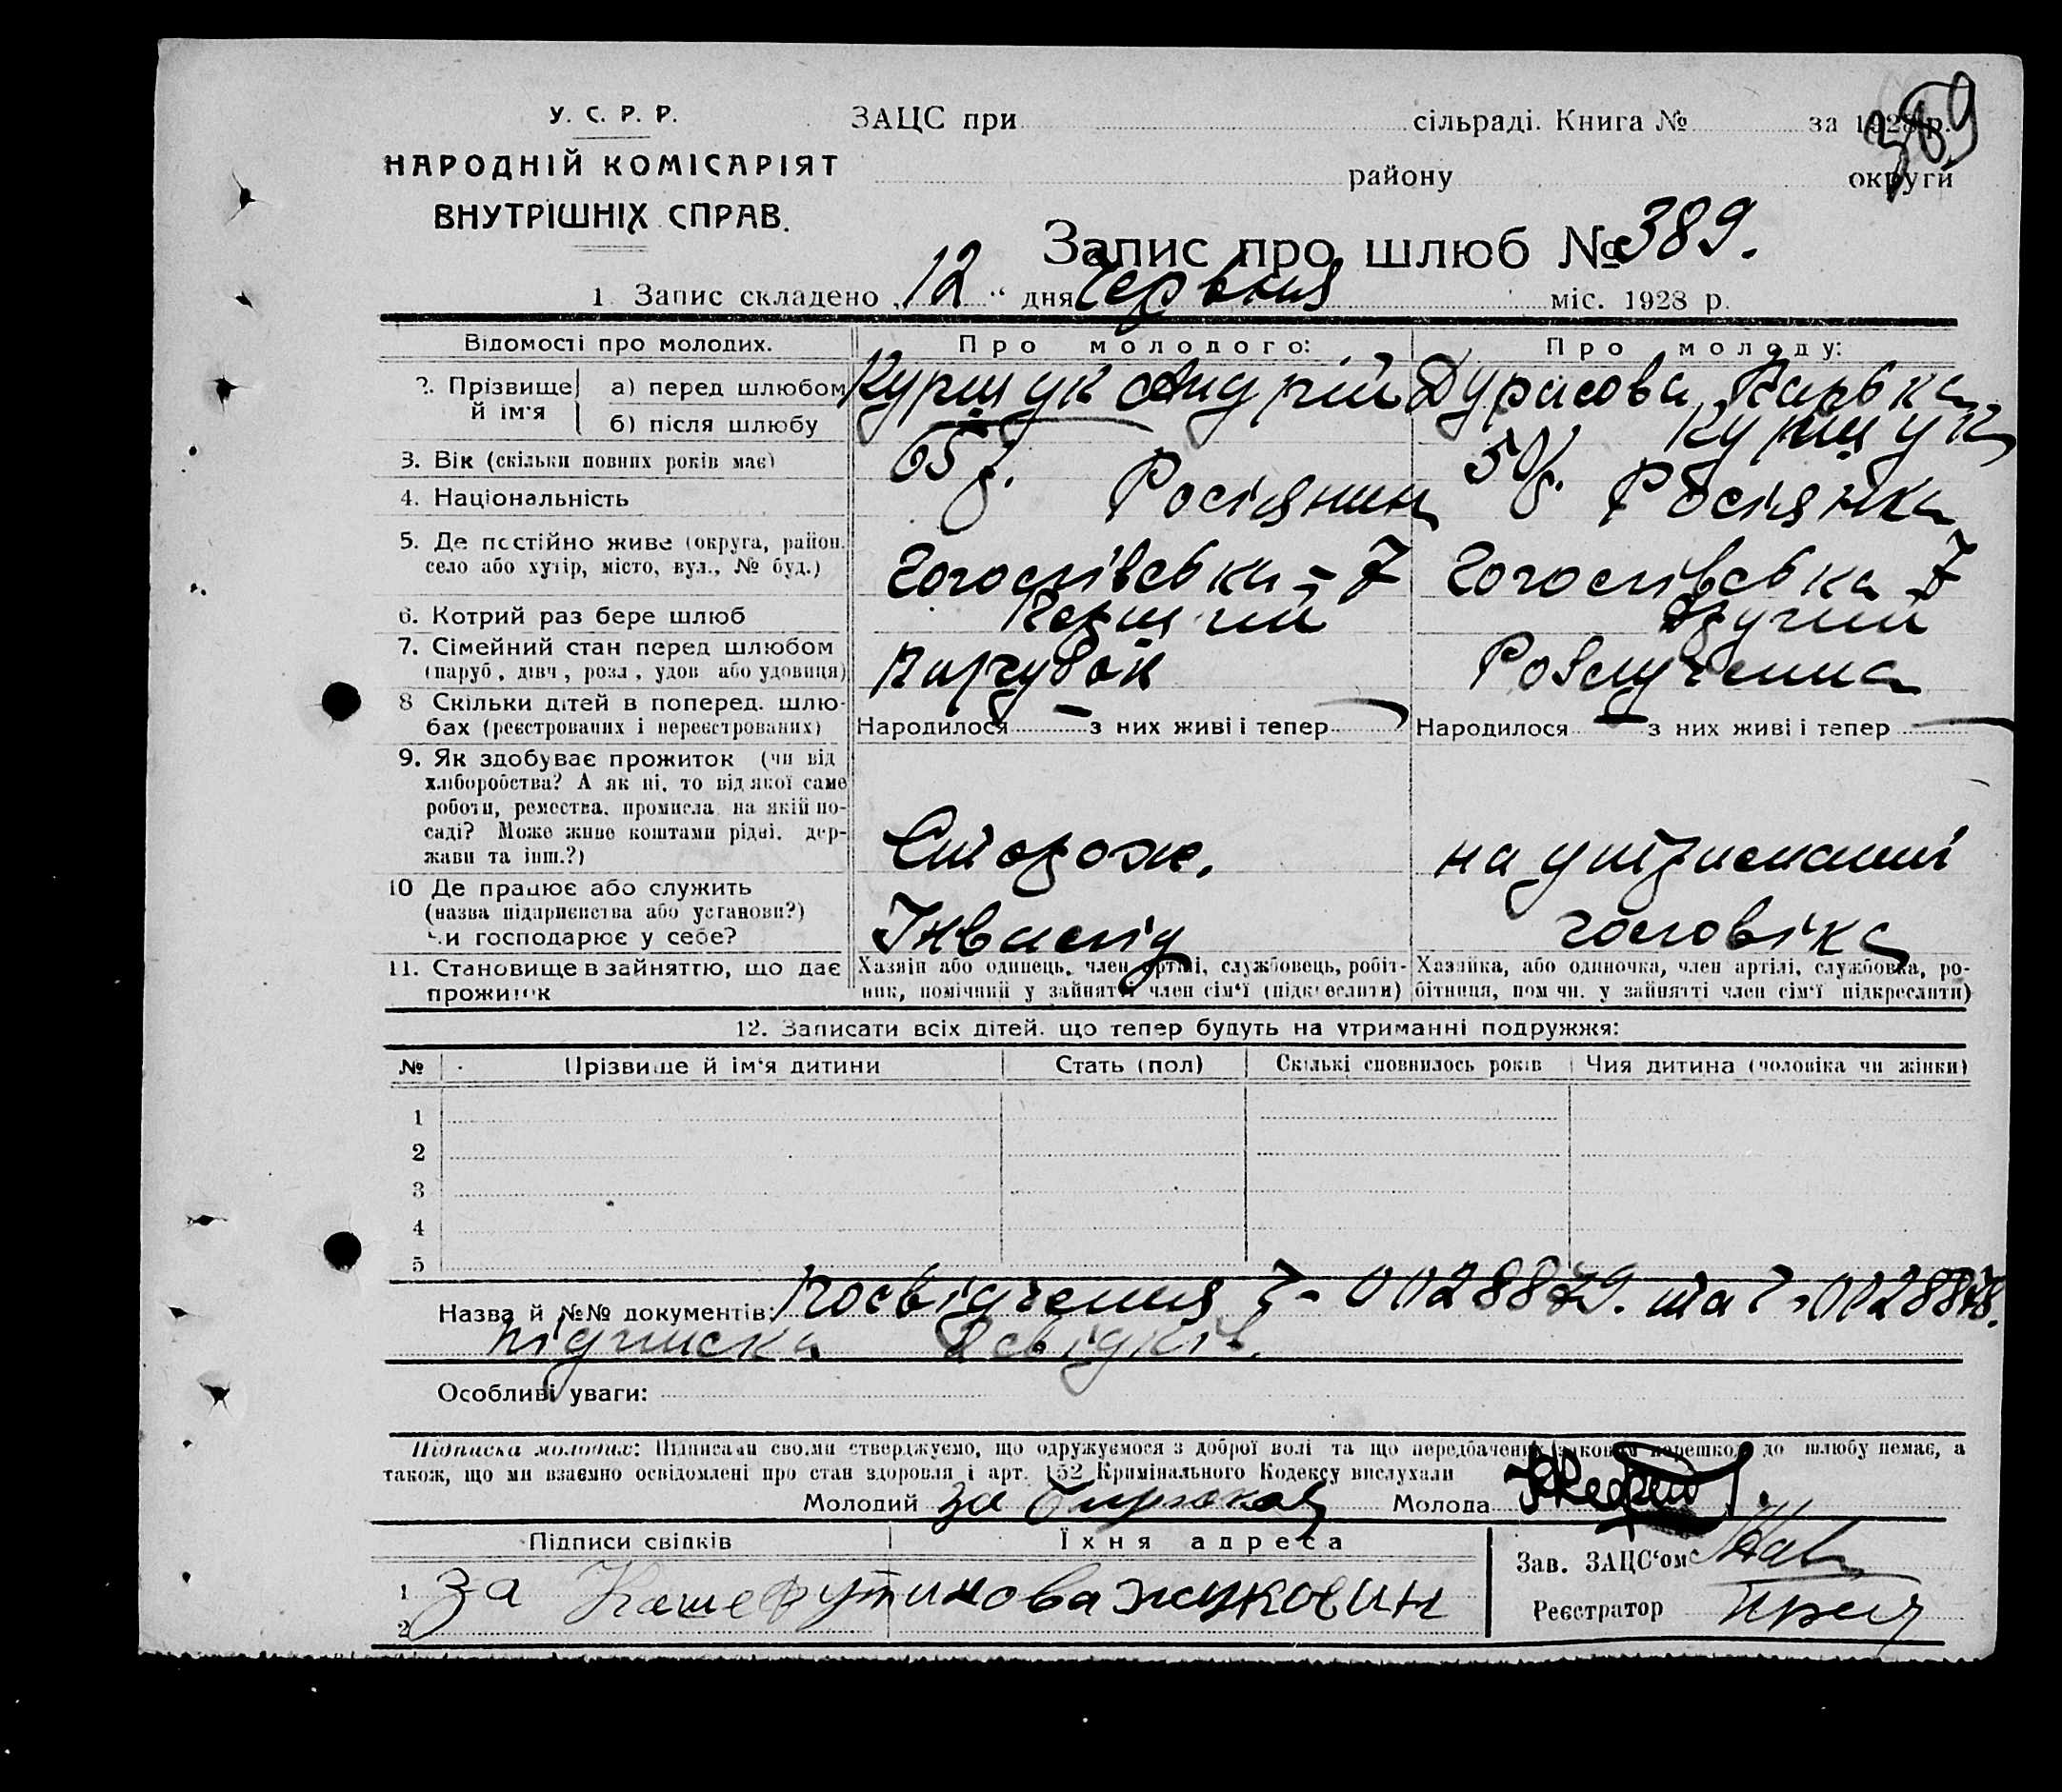 У. С. Р. Р.
НАРОДНІЙ КОМІСАРІЯТ
ВНУТРІШНІХ СПРАВ.
ЗАЦС при сільраді. Книга № за 1928 р.
389
району округи
Запис про шлюб № 389.
1 Запис складено „12“ дня Червня міс. 1928 р.
Відомості про молодих. Про молодого: Про молоду:
2. Прізвище й ім'я а) перед шлюбом Курщук Андрій Дурасова
б) після шлюбу Курщук
3. Вік (скільки повних років має) 65 р. 50 р.
4. Національність Росіянин Росіянка
5. Де постійно живе (округа, район.
село або хутір, місто, вул., № буд.) Гоголівська - 7 Гоголівська 7
6. Котрий раз бере шлюб Перший Другий
7. Сімейний стан перед шлюбом
(паруб., дівч., розл., удов. або удовиця) Парубок Розлучена
8 Скільки дітей в поперед. шлю-
бах (реєстрованих і нереєстрованих) Народилося — з них живі і тепер — Народилося — з них живі і тепер —
9. Як здобуває прожиток (чи від
хліборобства? А як ні, то від якої саме
роботи, ремества, промисла, на якій по-
саді? Може живе коштами рідні, дер-
жави та інш.?) Сторож, на утриманні
10 Де працює або служить
(назва підприємства або установи?)
чи господарює у себе? Інвалід чоловіка
11. Становище в зайняттю, що дає
прожиток
Хазяїн або одинець, член артілі, службовець, робіт-
ник, помічний у зайнятті член сім'ї (підкреслити)
Хазяйка, або одиночка, член артілі, службовка, ро-
бітниця, помічн. у зайнятті член сім'ї підкреслити)
12. Записати всіх дітей, що тепер будуть на утриманні подружжя:
№ Прізвище й ім'я дитини Стать (пол) Скількі сповнилось років Чия дитина (чоловіка чи жінки)
1
2
3
4
5
Назва й №№ документів: Посвідчення 7-0028879. та 7-0028878.
підписка свідків.
Особливі уваги:
Підписка молодих: Підписами своїми стверджуємо, що одружуємося з доброї волі та що передбачених законом перешкод до шлюбу немає, а
також, що ми взаємно освідомлені про стан здоровля і арт. 152 Кримінального Кодексу вислухали
Молодий за Молода
Підписи свідків Їхня адреса
Зав. ЗАЦС'ом
1 за
2
Реєстратор